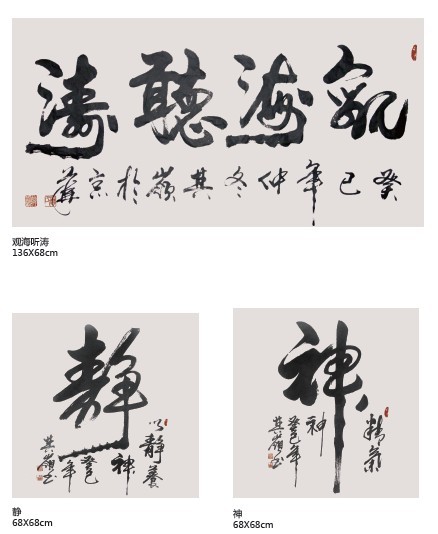 觀海聽濤
癸巳年仲冬其嶺於京華
观海听涛
136X68cm
靜
以靜養
神
癸巳
年
其嶺书
静
68X68cm
神
精氣
神
癸巳年
其嶺书
神
68X68cm